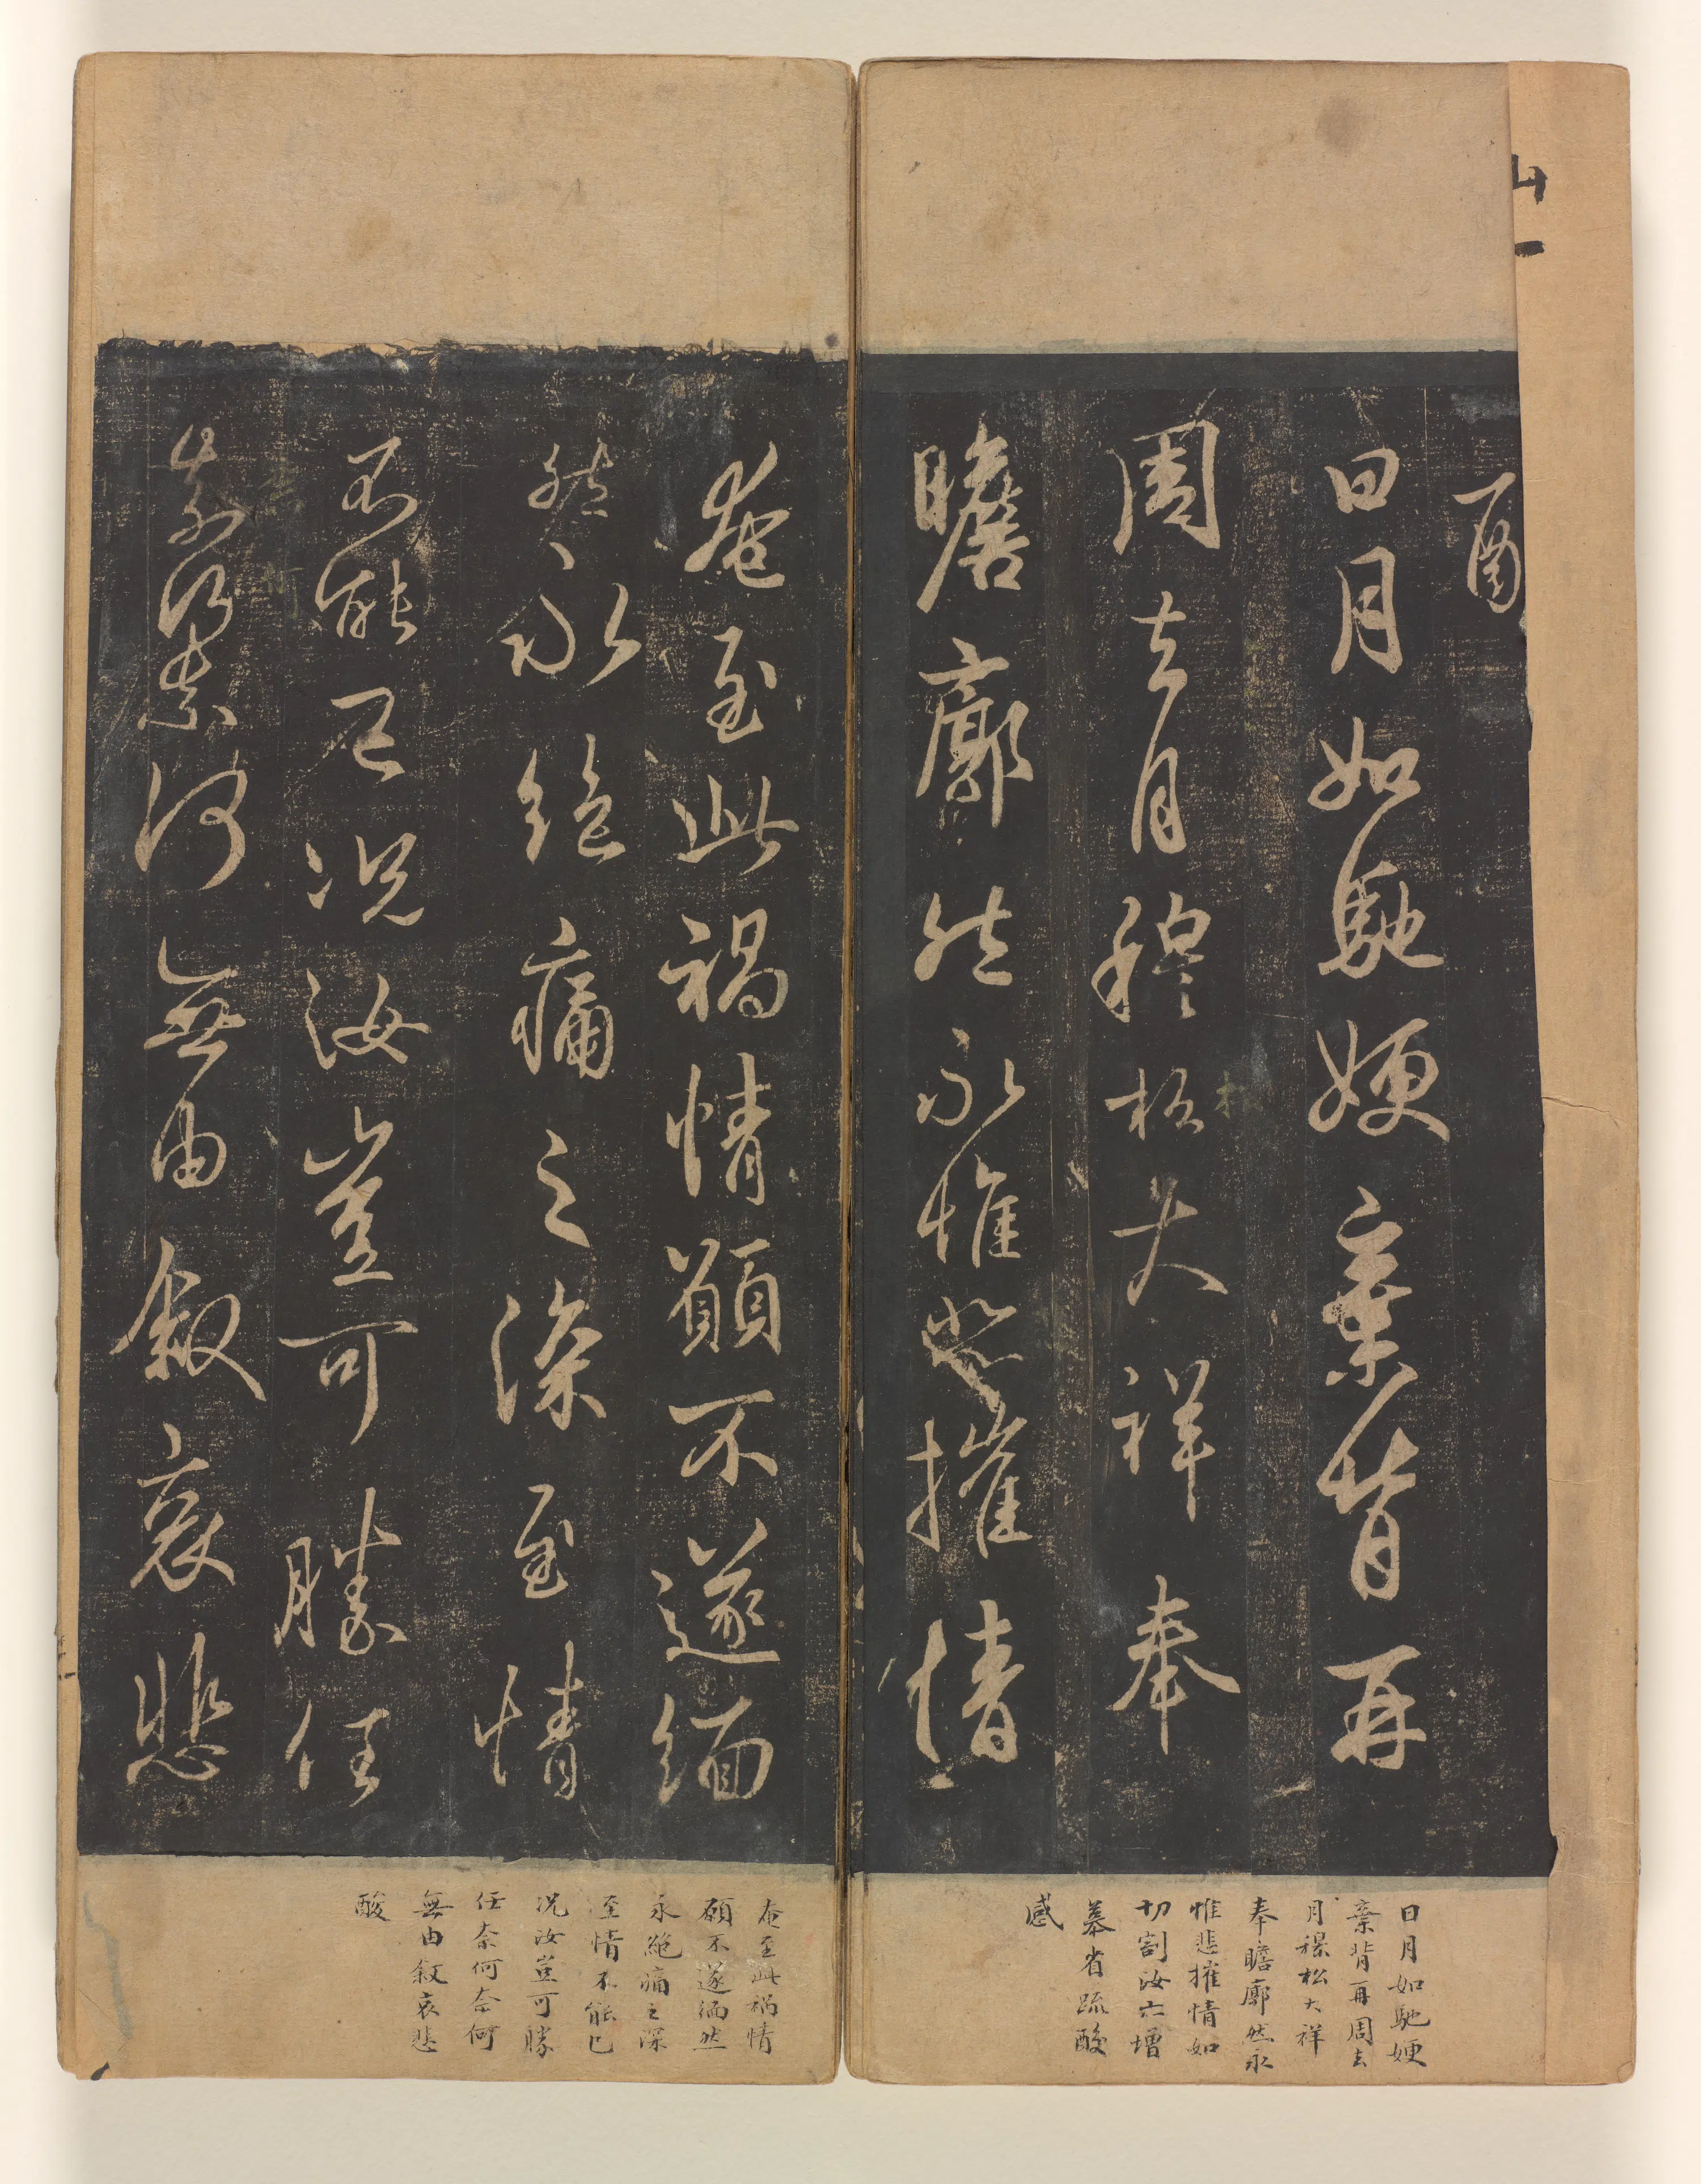 日月如馳㛐棄背再
周去月穆松大祥奉
瞻廓然永惟悲摧情
奄至此禍情願不遂緬
然永絕痛之深至情
不能已況汝豈可勝任
奈何奈何無由敘哀悲
日月如馳㛐
棄背再周去
月穆松大祥
奉瞻廓然永
惟悲摧情如
切割汝亦增
慕省疏酸
感
奄至此禍情
願不遂緬然
永絕痛之深
至情不能已
況汝豈可勝
任奈何奈何
無由敘哀悲
酸